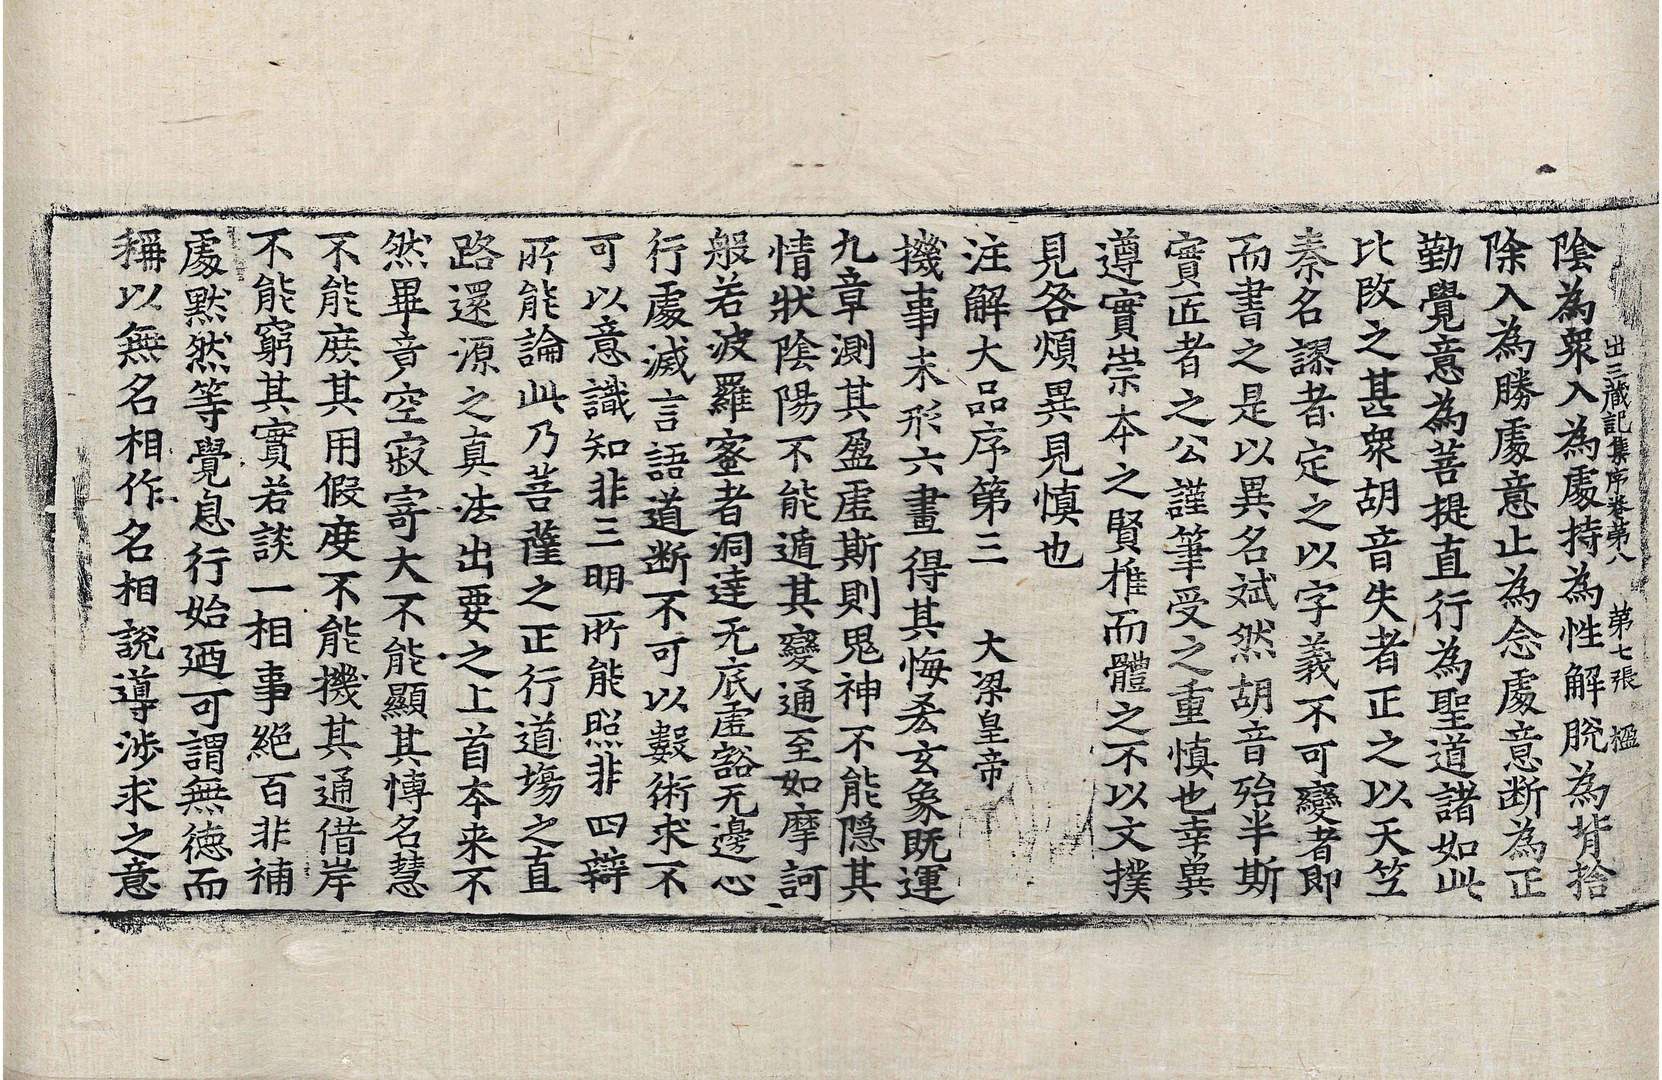 出三藏記集序卷第八　第七張　楹
陰為衆入為處持為性解脫為背捨
除入為勝處意止為念處意断為正
勤覺意為菩提直行為聖道諸如此
比改之甚衆胡音失者正之以天竺
秦名謬者定之以字義不可變者即
而書之是以異名斌然胡音殆半斯
實匠者之公謹筆受之重慎也幸兾
遵實崇夲之賢推而體之不以文撲
見咎煩異見慎也
注解大品序第三　大梁皇帝
機事未形六畫得其悔吝玄象既運
九章測其盈虛斯則鬼神不能隱其
情狀陰陽不能遁其變通至如摩訶
般若波羅蜜者洞達无底虛豁无邊心
行處滅言語道断不可以數術求不
可以意識知非三明所能照非四辯
所能論此乃菩薩之正行道場之直
路還源之真法出要之上首夲来不
然畢竟空寂寄大不能顯其愽名慧
不能庶其用假度不能機其通借岸
不能窮其實若談一相事絕百非補
處默然等覺息行始迺可謂無德而
稱以無名相作名相說導涉求之意